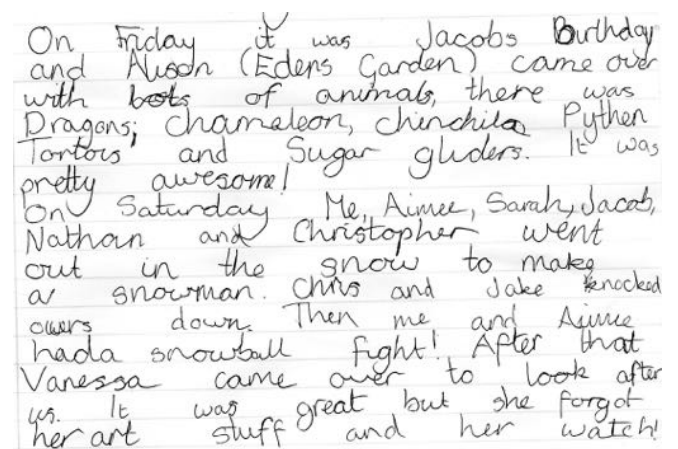 On Friday it was Jacobs Birthday
and Alison (Edens Garden) came over
with lots of animals, there was
Dragons, Chamaleon, chinchila Pythen
Tortois and Sugar gliders. It was
pretty awesome!
On Saturday Me, Aimee, Sarah, Jacob,
Nathan and Christopher went
out in the snow to make
a snowman. Chris and Jake knocked
owers down. Then me and Aimee
hada snowball fight! After that
Vanessa came over to look after
us. It was great but she forgot
her art stuff and her watch!